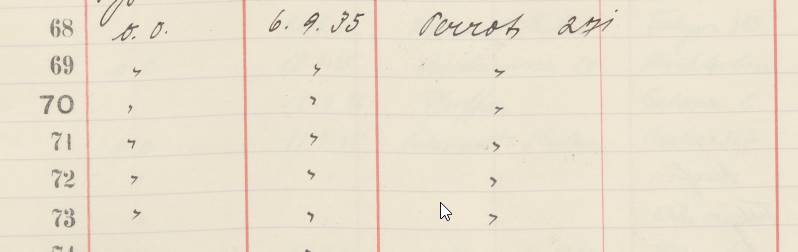 68 o.o. 6.9.35 Perrot
69 " " "
70 " " "
71 " " "
72 " " "
73 " " "